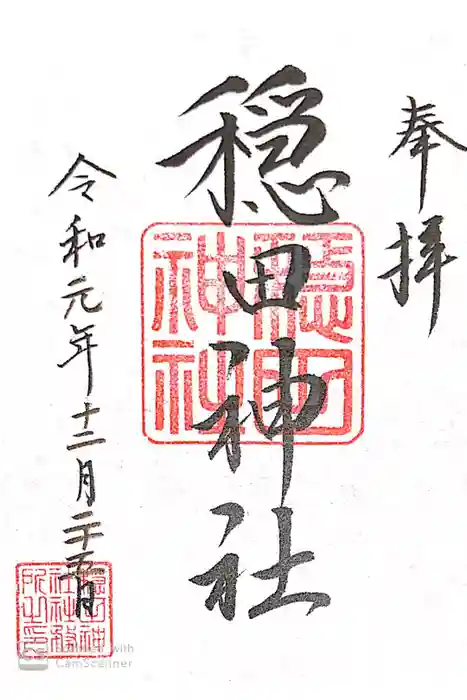 奉拝
穏田神社
穏田神社
令和元年十二月二十五日
穏田神社社務所之印
CS Scanned with
CamScanner